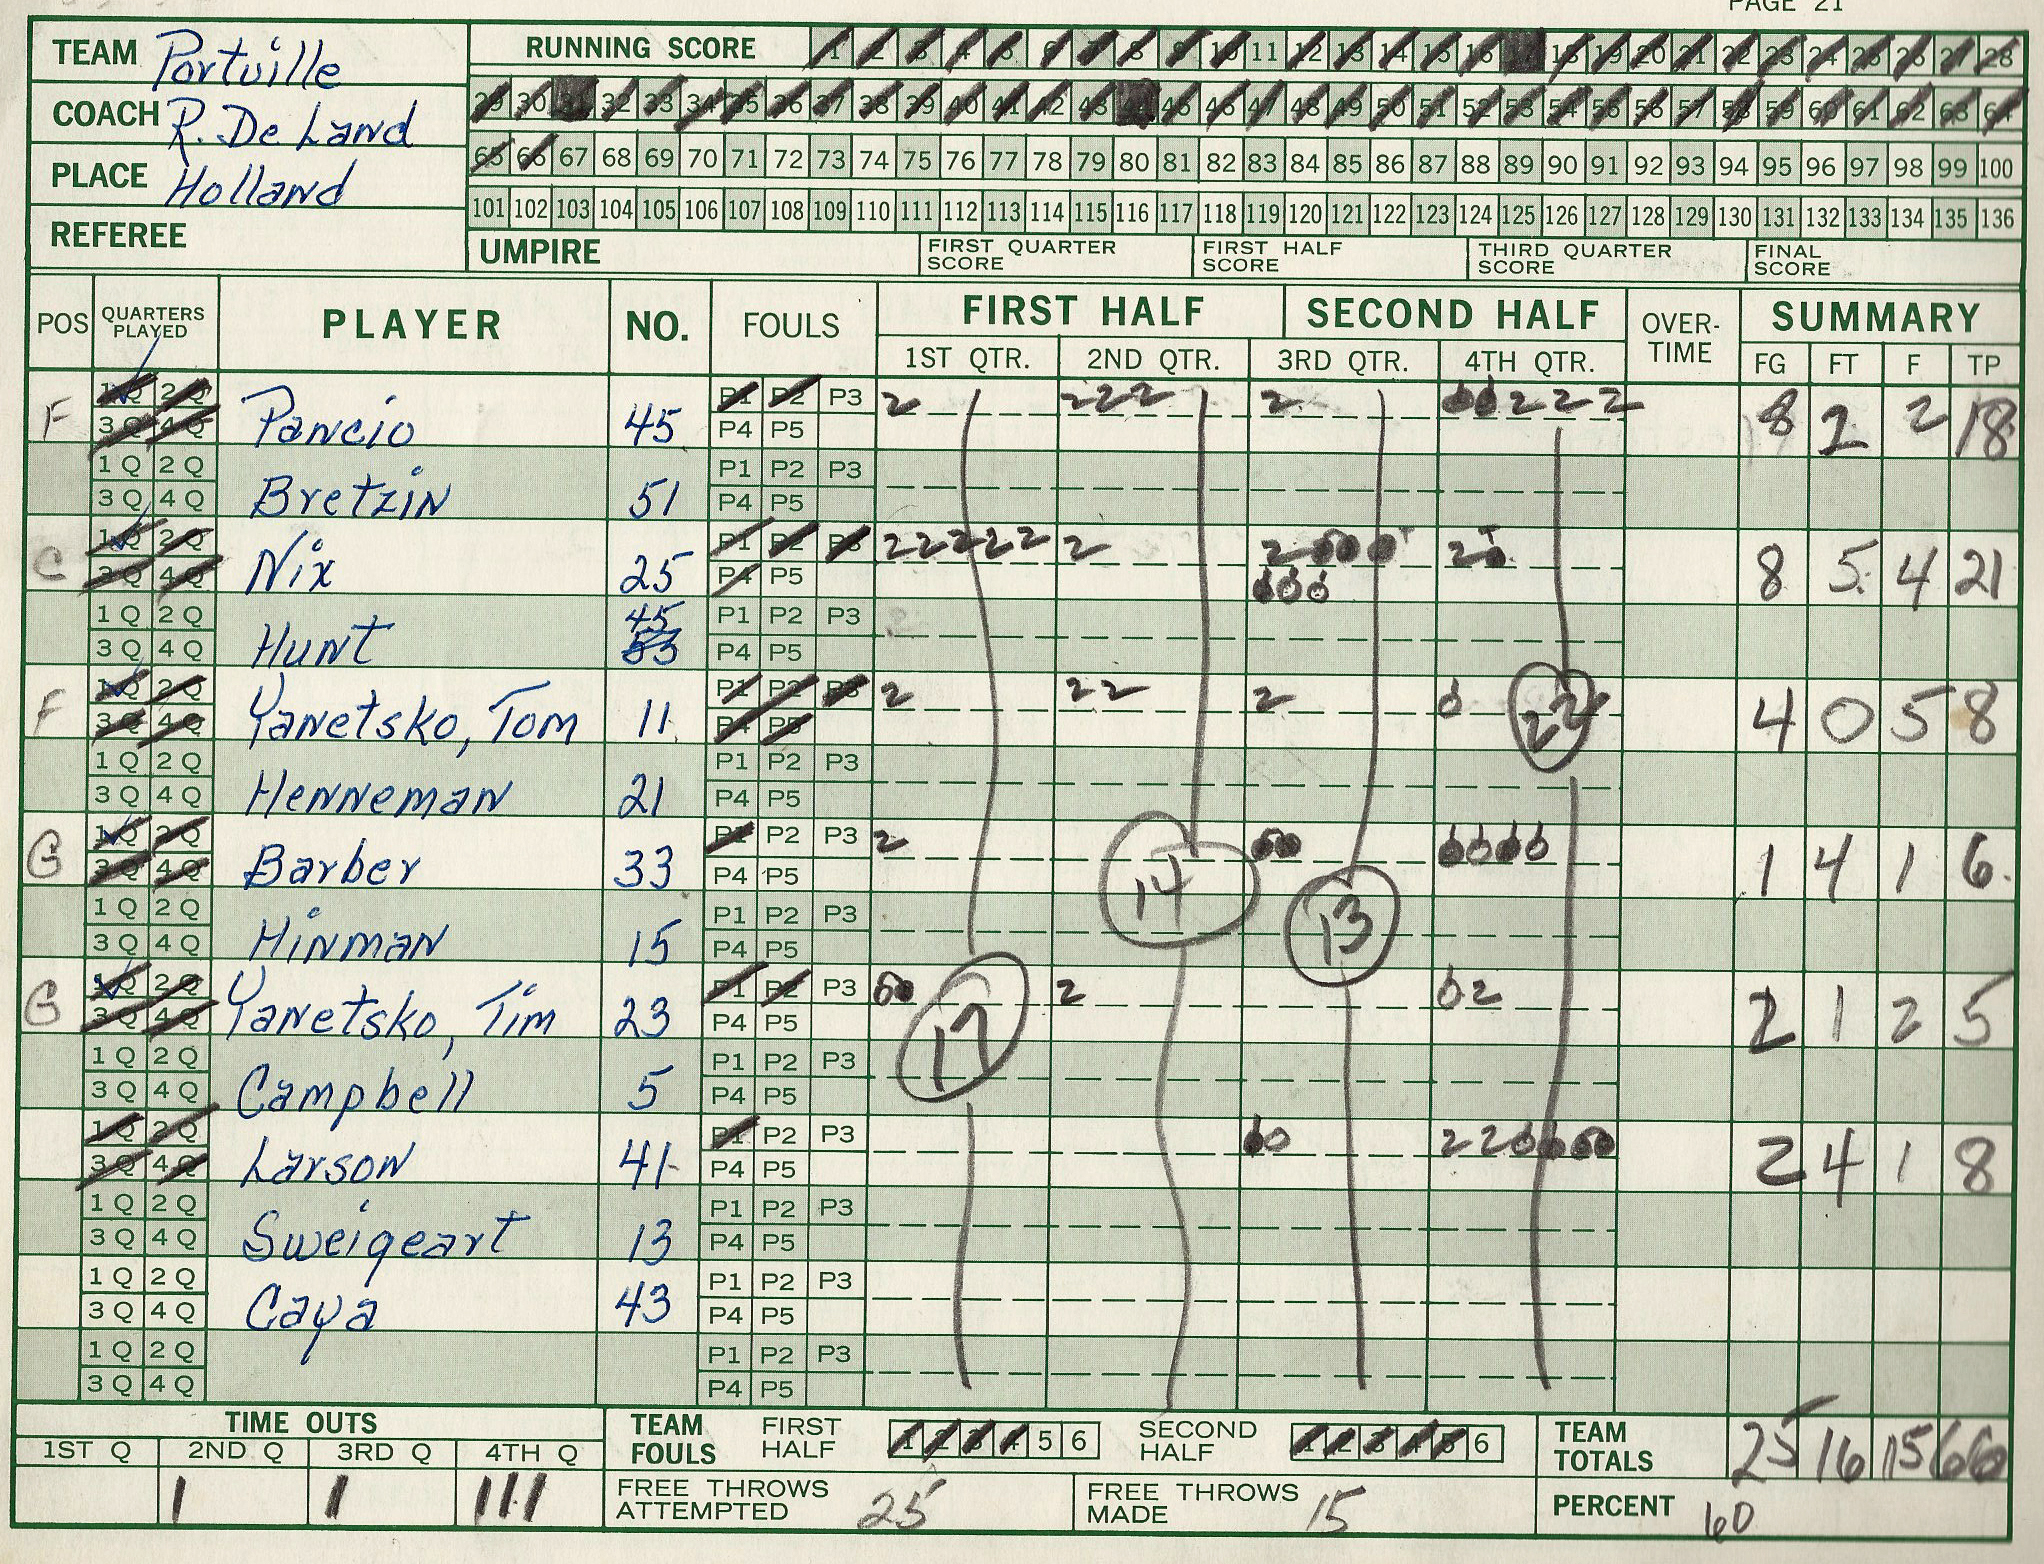 PAGE 21
TEAM Portville
COACH R. De Land
PLACE Holland
REFEREE
RUNNING SCORE 1 2 3 4 5 6 7 8 9 10 11 12 13 14 15 16 17 18 19 20 21 22 23 24 25 26 27 28
29 30 31 32 33 34 35 36 37 38 39 40 41 42 43 44 45 46 47 48 49 50 51 52 53 54 55 56 57 58 59 60 61 62 63 64
65 66 67 68 69 70 71 72 73 74 75 76 77 78 79 80 81 82 83 84 85 86 87 88 89 90 91 92 93 94 95 96 97 98 99 100
101 102 103 104 105 106 107 108 109 110 111 112 113 114 115 116 117 118 119 120 121 122 123 124 125 126 127 128 129 130 131 132 133 134 135 136
UMPIRE FIRST QUARTER SCORE FIRST HALF SCORE THIRD QUARTER SCORE FINAL SCORE
POS QUARTERS PLAYED PLAYER NO. FOULS FIRST HALF SECOND HALF OVER-TIME SUMMARY
1ST QTR. 2ND QTR. 3RD QTR. 4TH QTR. FG FT F TP
F 1Q 2Q 3Q 4Q Pancio 45 P1 P2 P3 P4 P5 2 222 2 222 8 2 2 18
1Q 2Q 3Q 4Q Bretzin 51 P1 P2 P3 P4 P5
C 1Q 2Q 3Q 4Q Nix 25 P1 P2 P3 P4 P5 22222 2 2 2 8 5 4 21
1Q 2Q 3Q 4Q Hunt 45 53 P1 P2 P3 P4 P5
F 1Q 2Q 3Q 4Q Yanetsko, Tom 11 P1 P2 P3 P4 P5 2 22 2 0 22 4 0 5 8
1Q 2Q 3Q 4Q Henneman 21 P1 P2 P3 P4 P5
G 1Q 2Q 3Q 4Q Barber 33 P1 P2 P3 P4 P5 2 14 1 4 1 6
1Q 2Q 3Q 4Q Hinman 15 P1 P2 P3 P4 P5 13
G 1Q 2Q 3Q 4Q Yanetsko, Tim 23 P1 P2 P3 P4 P5 17 2 02 2 1 2 5
1Q 2Q 3Q 4Q Campbell 5 P1 P2 P3 P4 P5
1Q 2Q 3Q 4Q Larson 41 P1 P2 P3 P4 P5 22 2 4 1 8
1Q 2Q 3Q 4Q Sweigeart 13 P1 P2 P3 P4 P5
1Q 2Q 3Q 4Q Caya 43 P1 P2 P3 P4 P5
1Q 2Q 3Q 4Q P1 P2 P3 P4 P5
TIME OUTS TEAM FOULS FIRST HALF 1 2 3 4 5 6 SECOND HALF 1 2 3 4 5 6 TEAM TOTALS 25 16 15 66
1ST Q 2ND Q 3RD Q 4TH Q
1 1 111 FREE THROWS ATTEMPTED 25 FREE THROWS MADE 15 PERCENT 60